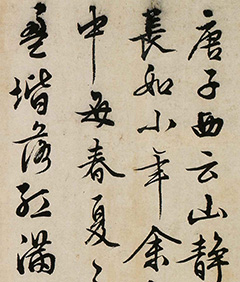 唐子西云山静
長如小年余
中每春夏
盈堦落花滿